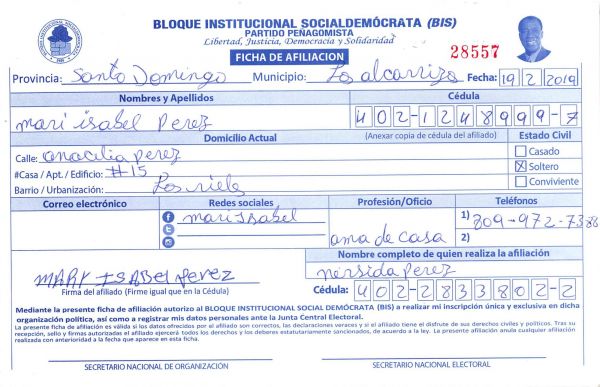 BLOQUE INSTITUCIONAL SOCIALDEMÓCRATA (BIS)
PARTIDO PEÑAGOMISTA
Libertad, Justicia, Democracia y Solidaridad
FICHA DE AFILIACION
28557
Provincia: Santo Domingo Municipio: Los alcarrizo Fecha: 19 2 2019
Nombres y Apellidos Cédula
mari isabel Perez 402-1248999-7
Domicilio Actual (Anexar copia de cédula del afiliado) Estado Civil
Calle: anacilia perez Casado
#Casa / Apt. / Edificio: #15 Soltero
Barrio / Urbanización: Los riele Conviviente
Correo electrónico Redes sociales Profesión/Oficio Teléfonos
marissabel ama de casa 1) 809-972-7388
2)
Nombre completo de quien realiza la afiliación
MARY ISABEL perez nersida perez
Firma del afiliado (Firme igual que en la Cédula) Cédula: 402-2833802-2
Mediante la presente ficha de afiliación autorizo al BLOQUE INSTITUCIONAL SOCIAL DEMÓCRATA (BIS) a realizar mi inscripción única y exclusiva en dicha
organización política, así como a registrar mis datos personales ante la Junta Central Electoral.
La presente ficha de afiliación es válida si los datos ofrecidos por el afiliado son correctos, las declaraciones veraces y si el afiliado tiene el disfrute de sus derechos civiles y políticos. Tras su
recepción, sello y firmas autorizadas el afiliado ejercerá todos los derechos y los deberes estatutariamente sancionados, de acuerdo a la ley. La presente afiliación anula cualquier afiliación
realizada con anterioridad a la fecha que aparece en esta ficha.
SECRETARIO NACIONAL DE ORGANIZACIÓN SECRETARIO NACIONAL ELECTORAL